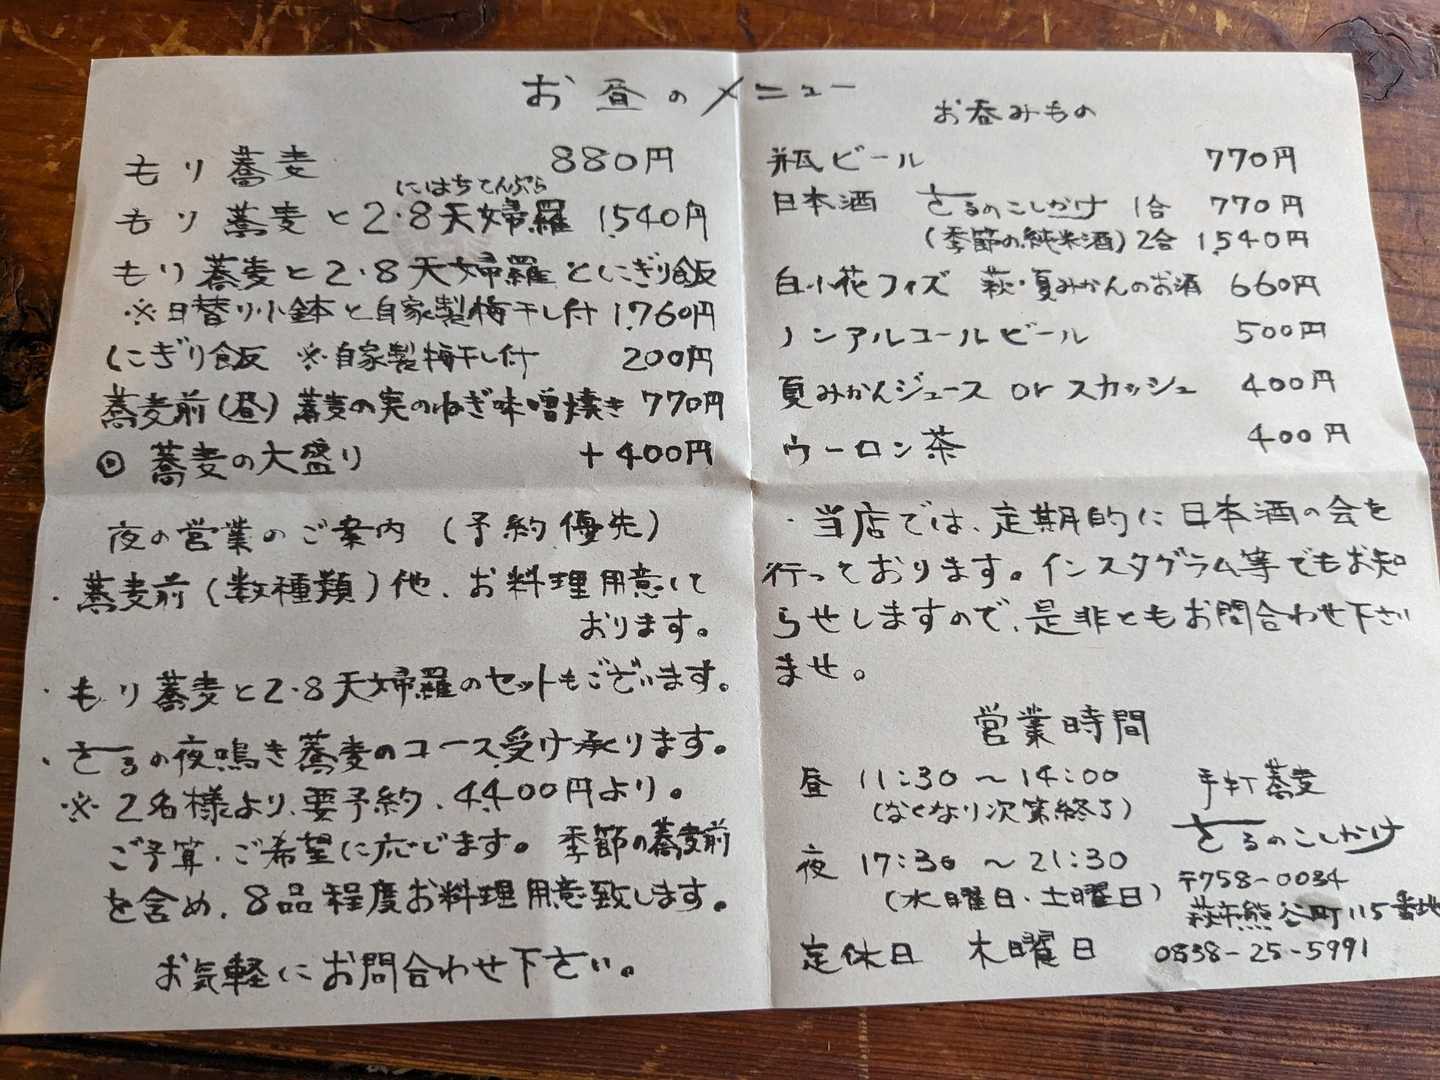 お昼のメニュー
もり蕎麦 880円
にはちてんぷら
もり蕎麦と2・8天婦羅 1,540円
もり蕎麦と2・8天婦羅とにぎり飯
※日替り小鉢と自家製梅干し付 1,760円
にぎり飯 ※自家製梅干し付 200円
蕎麦前(昼) 蕎麦の実のねぎ味噌焼き 770円
◎ 蕎麦の大盛り +400円
夜の営業のご案内 (予約優先)
・蕎麦前(数種類)他、お料理用意して
おります。
・もり蕎麦と2・8天婦羅のセットもございます。
・さるの夜鳴き蕎麦のコース受け承ります。
※2名様より、要予約、4,400円より。
ご予算、ご希望に応じます。季節の蕎麦前
を含め、8品程度お料理用意致します。
お気軽にお問合わせ下さい。
お呑みもの
瓶ビール 770円
日本酒 さるのこしかけ 1合 770円
(季節の純米酒) 2合 1,540円
白小花フィズ 萩・夏みかんのお酒 660円
ノンアルコールビール 500円
夏みかんジュース or スカッシュ 400円
ウーロン茶 400円
・当店では、定期的に日本酒の会を
行っております。インスタグラム等でもお知
らせしますので、是非ともお問合わせ下さい
ませ。
営業時間
昼 11:30～14:00
(なくなり次第終了)
夜 17:30～21:30
(水曜日・土曜日)
定休日 木曜日
手打蕎麦
さるのこしかけ
〒758-0034
萩市熊谷町115番地
0838-25-5991